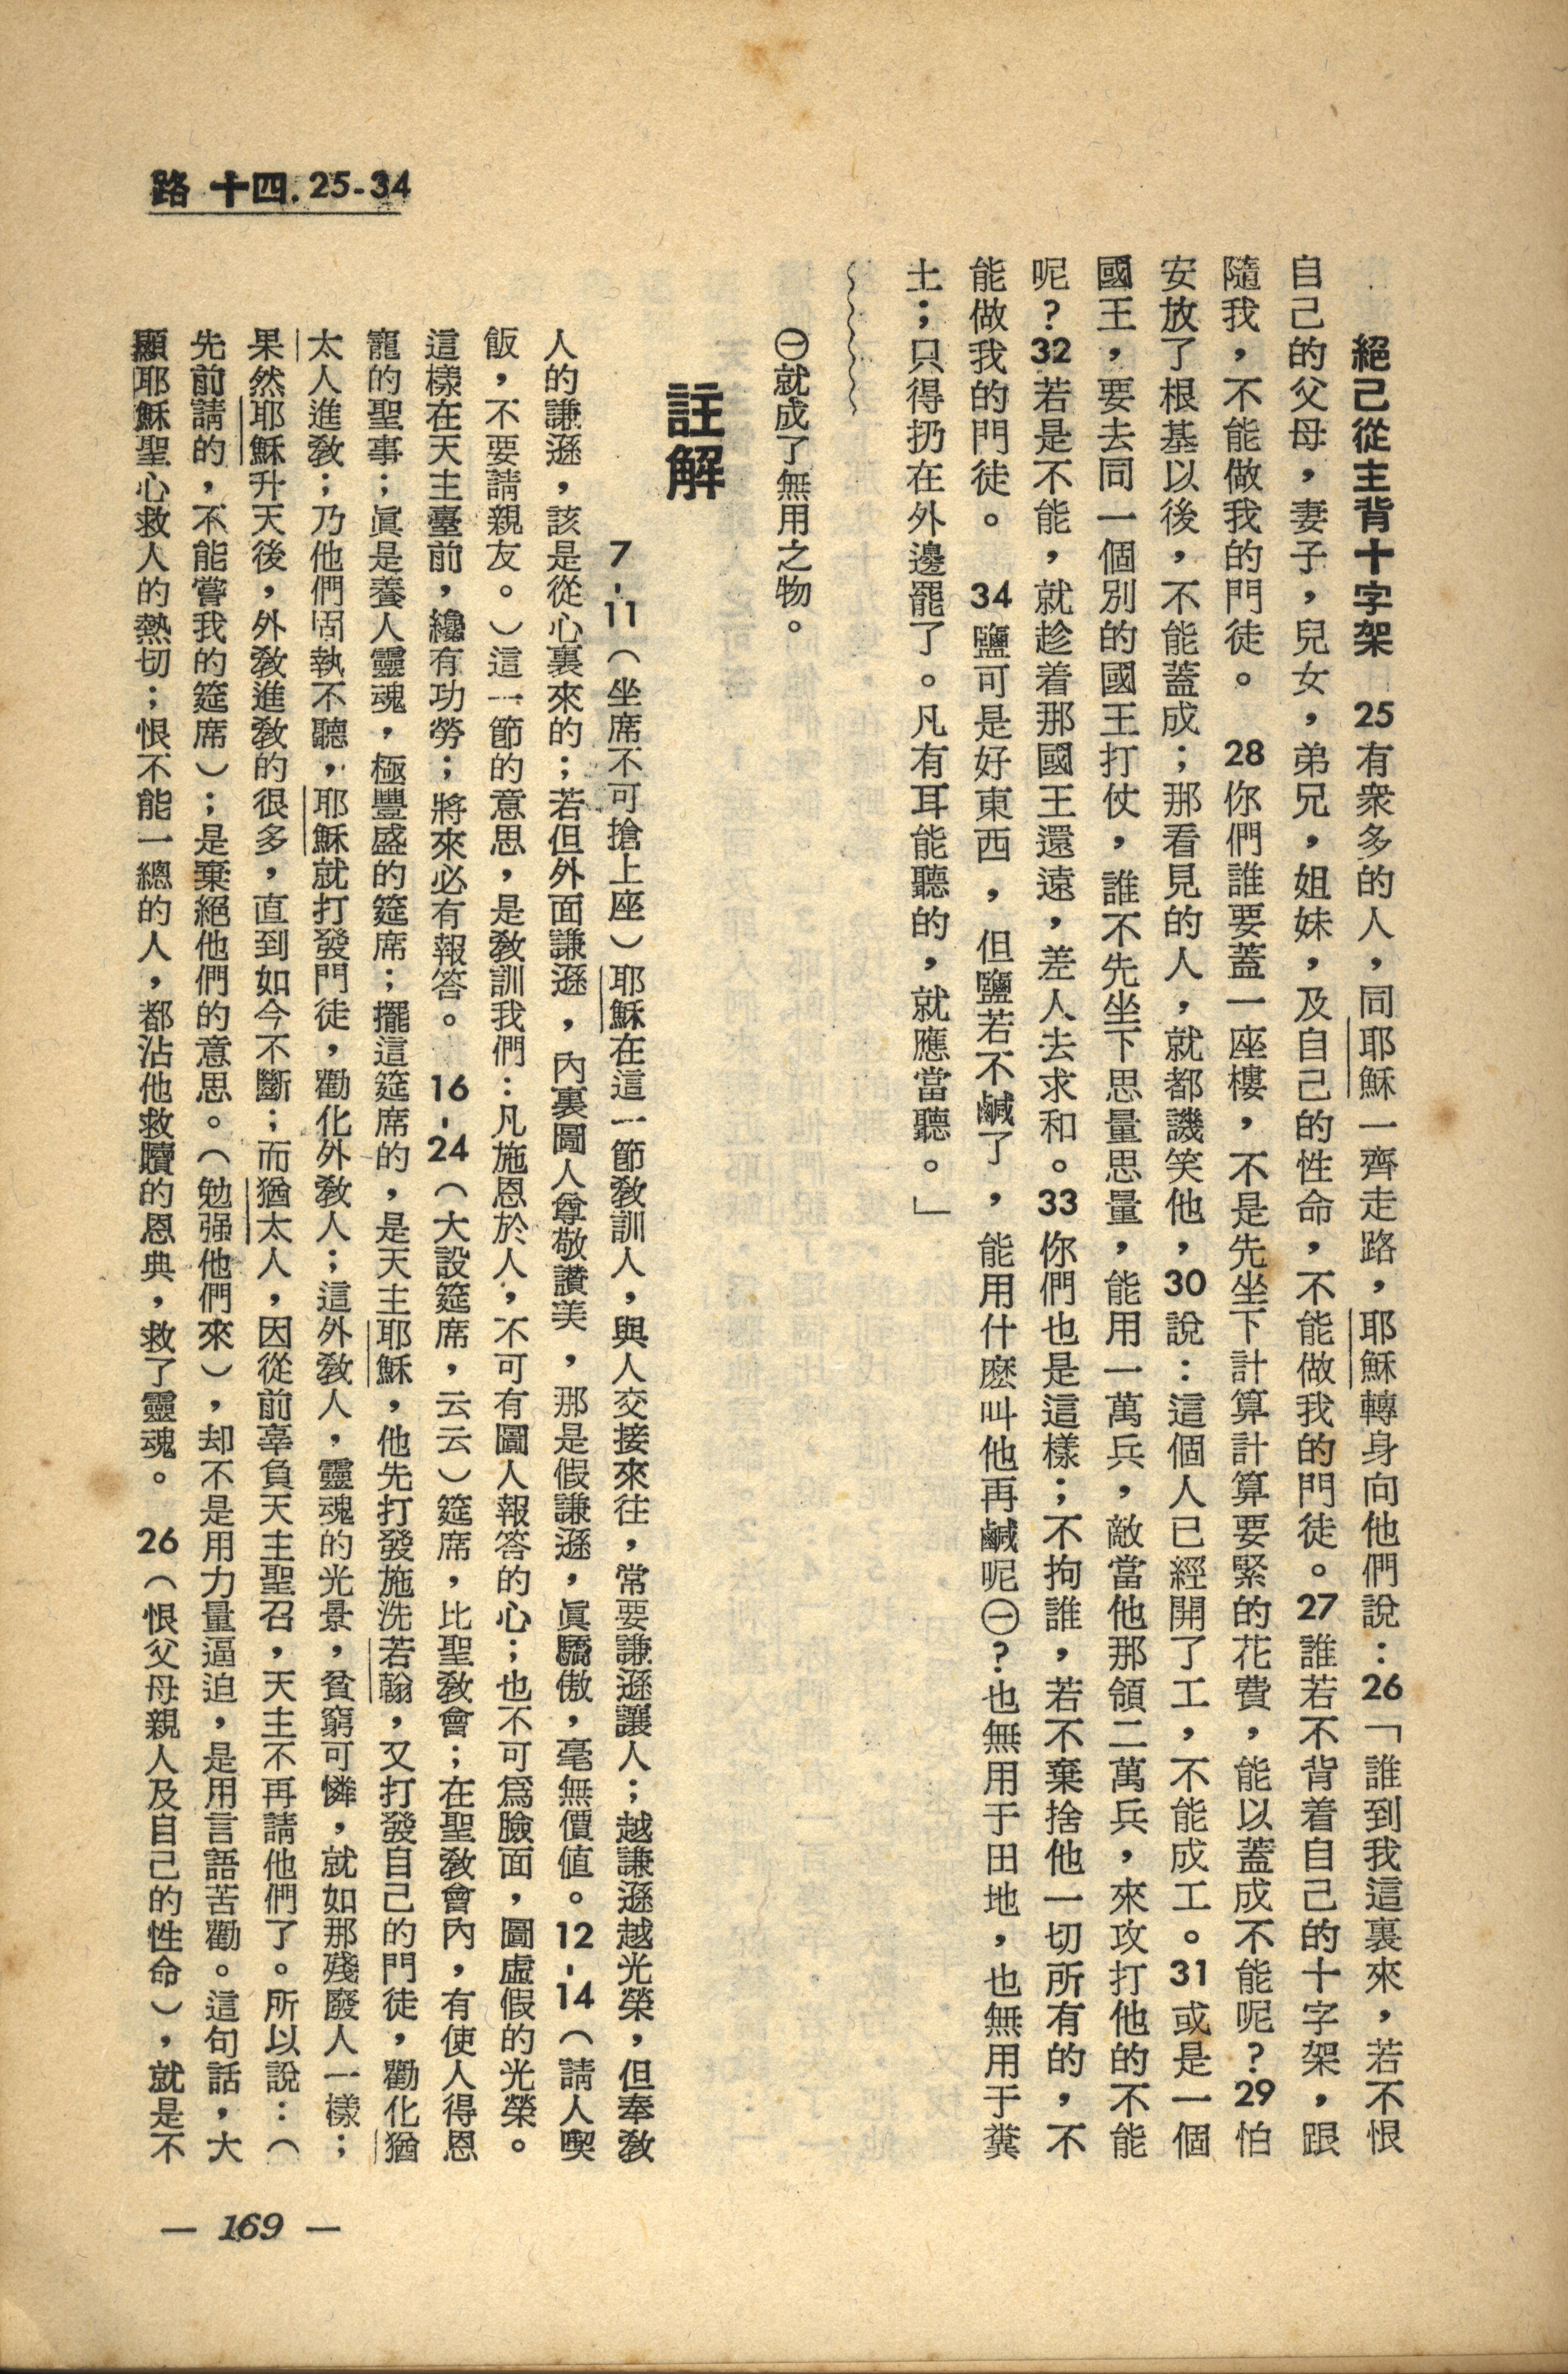 路 十四.25-34
絕己從主背十字架 25有衆多的人，同耶穌一齊走路，耶穌轉身向他們說：26「誰到我這裏來，若不恨
自己的父母，妻子，兒女，弟兄，姐妹，及自己的性命，不能做我的門徒。27誰若不背着自己的十字架，跟
隨我，不能做我的門徒。 28你們誰要蓋一座樓，不是先坐下計算計算要緊的花費，能以蓋成不能呢？29怕
安放了根基以後，不能蓋成；那看見的人，就都譏笑他，30說：這個人已經開了工，不能成工。31或是一個
國王，要去同一個別的國王打仗，誰不先坐下思量思量，能用一萬兵，敵當他那領二萬兵，來攻打他的不能
呢？32若是不能，就趁着那國王還遠，差人去求和。33你們也是這樣；不拘誰，若不棄捨他一切所有的，不
能做我的門徒。 34鹽可是好東西，但鹽若不鹹了，能用什麽叫他再鹹呢㊀？也無用于田地，也無用于糞
土；只得扔在外邊罷了。凡有耳能聽的，就應當聽。」
㊀就成了無用之物。
註解
7-11（坐席不可搶上座）耶穌在這一節敎訓人，與人交接來往，常要謙遜讓人；越謙遜越光榮，但奉敎
人的謙遜，該是從心裏來的；若但外面謙遜，內裏圖人尊敬讚美，那是假謙遜，眞驕傲，毫無價値。12-14（請人喫
飯，不要請親友。）這一節的意思，是敎訓我們：凡施恩於人，不可有圖人報答的心；也不可爲臉面，圖虛假的光榮。
這樣在天主臺前，纔有功勞；將來必有報答。 16-24（大設筵席，云云）筵席，比聖敎會；在聖敎會內，有使人得恩
寵的聖事；眞是養人靈魂，極豐盛的筵席；擺這筵席的，是天主耶穌，他先打發施洗若翰，又打發自己的門徒，勸化猶
太人進敎；乃他們固執不聽，耶穌就打發門徒，勸化外敎人；這外敎人，靈魂的光景，貧窮可憐，就如那殘廢人一樣；
果然耶穌升天後，外敎進敎的很多，直到如今不斷；而猶太人，因從前辜負天主聖召，天主不再請他們了。所以說：（
先前請的，不能嘗我的筵席）；是棄絕他們的意思。（勉强他們來），却不是用力量逼迫，是用言語苦勸。這句話，大
顯耶穌聖心救人的熱切；恨不能一總的人，都沾他救贖的恩典，救了靈魂。 26（恨父母親人及自己的性命），就是不
— 169 —